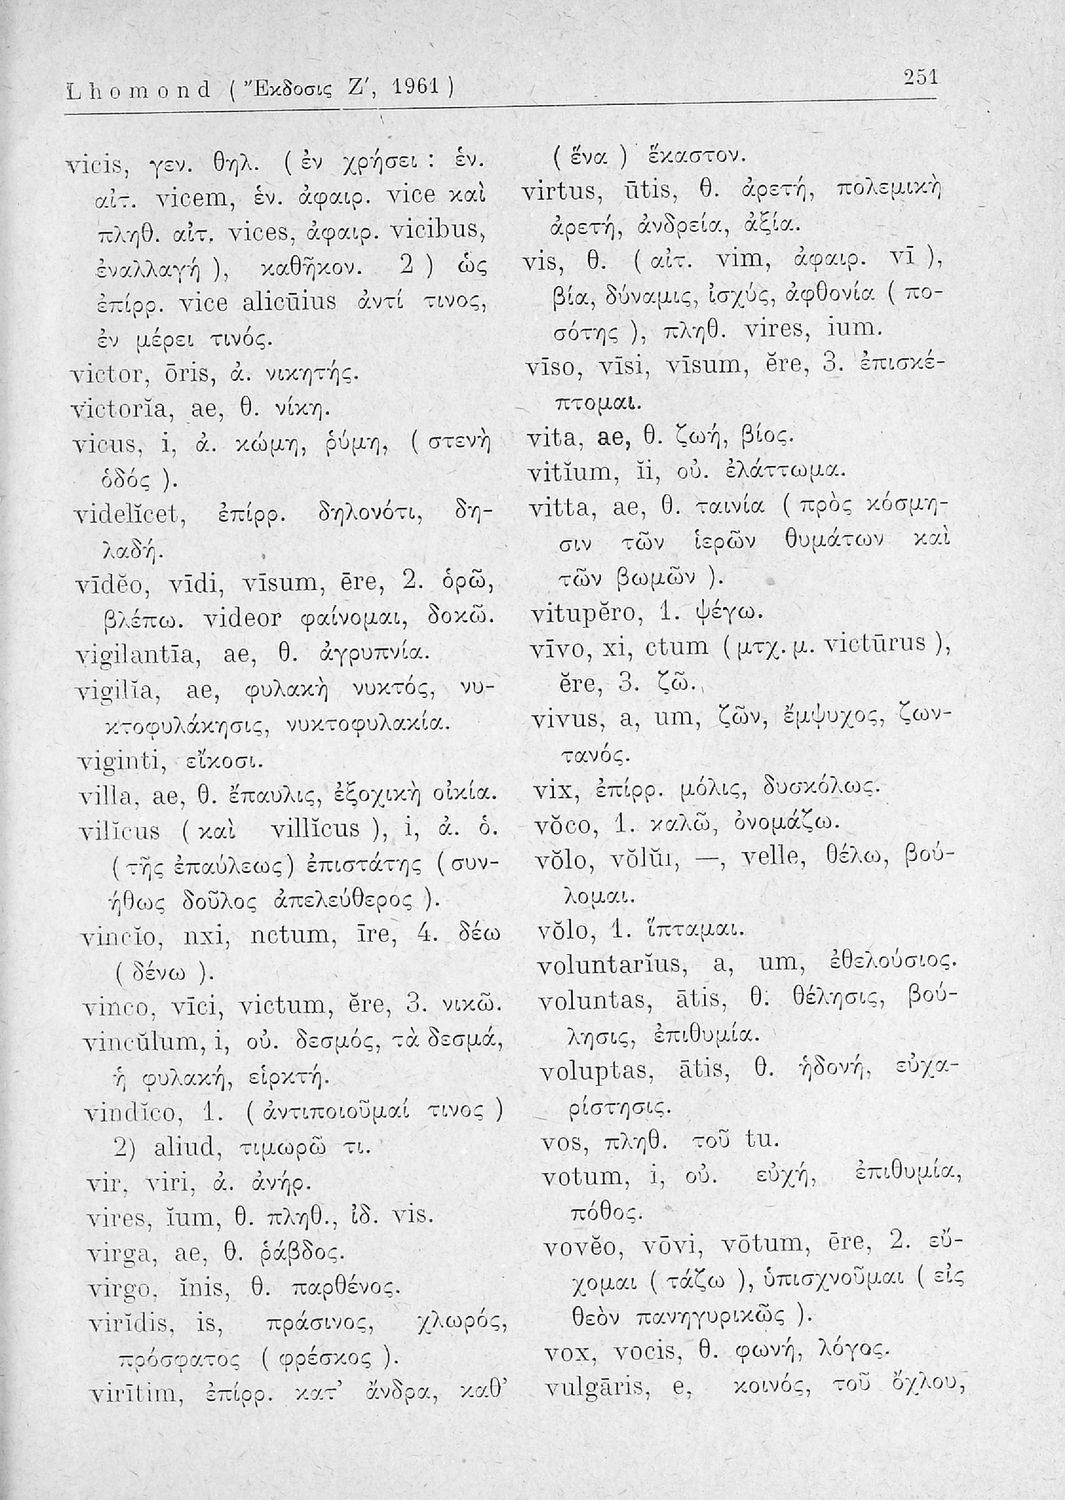 Lhomond ( Ἔκδοσις Ζ′, 1961 ) 251
vicis, γεν. θηλ. ( ἐν χρήσει : ἑν.
αἰτ. vicem, ἑν. ἀφαιρ. vice καὶ
πληθ. αἰτ. vices, ἀφαιρ. vicibus,
ἐναλλαγή ), καθῆκον. 2 ) ὡς
ἐπίρρ. vice alicūius ἀντί τινος,
ἐν μέρει τινός.
victor, ōris, ἀ. νικητής.
victorĭa, ae, θ. νίκη.
vicus, i, ἀ. κώμη, ῥύμη, ( στενὴ
ὁδός ).
videlĭcet, ἐπίρρ. δηλονότι, δη-
λαδή.
vīdĕo, vīdi, vīsum, ēre, 2. ὁρῶ,
βλέπω. videor φαίνομαι, δοκῶ.
vigilantĭa, ae, θ. ἀγρυπνία.
vigilĭa, ae, φυλακὴ νυκτός, νυ-
κτοφυλάκησις, νυκτοφυλακία.
viginti, εἴκοσι.
villa, ae, θ. ἔπαυλις, ἐξοχικὴ οἰκία.
vilĭcus ( καὶ villĭcus ), i, ἀ. ὁ.
( τῆς ἐπαύλεως ) ἐπιστάτης ( συν-
ήθως δοῦλος ἀπελεύθερος ).
vincĭo, nxi, nctum, īre, 4. δέω
( δένω ).
vinco, vīci, victum, ĕre, 3. νικῶ.
vincŭlum, i, οὐ. δεσμός, τὰ δεσμά,
ἡ φυλακή, εἱρκτή.
vindĭco, 1. ( ἀντιποιοῦμαί τινος )
2) aliud, τιμωρῶ τι.
vir, viri, ἀ. ἀνήρ.
vires, ĭum, θ. πληθ., ἰδ. vis.
virga, ae, θ. ῥάβδος.
virgo, ĭnis, θ. παρθένος.
virĭdis, is, πράσινος, χλωρός,
πρόσφατος ( φρέσκος ).
virītim, ἐπίρρ. κατ’ ἄνδρα, καθ’
( ἕνα ) ἕκαστον.
virtus, ūtis, θ. ἀρετή, πολεμικὴ
ἀρετή, ἀνδρεία, ἀξία.
vis, θ. ( αἰτ. vim, ἀφαιρ. vī ),
βία, δύναμις, ἰσχύς, ἀφθονία ( πο-
σότης ), πληθ. vires, ium.
vīso, vīsi, vīsum, ĕre, 3. ἐπισκέ-
πτομαι.
vita, ae, θ. ζωή, βίος.
vitĭum, ĭi, οὐ. ἐλάττωμα.
vitta, ae, θ. ταινία ( πρὸς κόσμη-
σιν τῶν ἱερῶν θυμάτων καὶ
τῶν βωμῶν ).
vitupĕro, 1. ψέγω.
vīvo, xi, ctum ( μτχ. μ. victūrus ),
ĕre, 3. ζῶ.
vivus, a, um, ζῶν, ἔμψυχος, ζων-
τανός.
vix, ἐπίρρ. μόλις, δυσκόλως.
vŏco, 1. καλῶ, ὀνομάζω.
vŏlo, vŏlŭi, —, velle, θέλω, βού-
λομαι.
vŏlo, 1. ἵπταμαι.
voluntarĭus, a, um, ἐθελούσιος.
voluntas, ātis, θ. θέλησις, βού-
λησις, ἐπιθυμία.
voluptas, ātis, θ. ἡδονή, εὐχα-
ρίστησις.
vos, πληθ. τοῦ tu.
votum, i, οὐ. εὐχή, ἐπιθυμία,
πόθος.
vovĕo, vōvi, vōtum, ēre, 2. εὔ-
χομαι ( τάζω ), ὑπισχνοῦμαι ( εἰς
θεὸν πανηγυρικῶς ).
vox, vocis, θ. φωνή, λόγος.
vulgāris, e, κοινός, τοῦ ὄχλου,